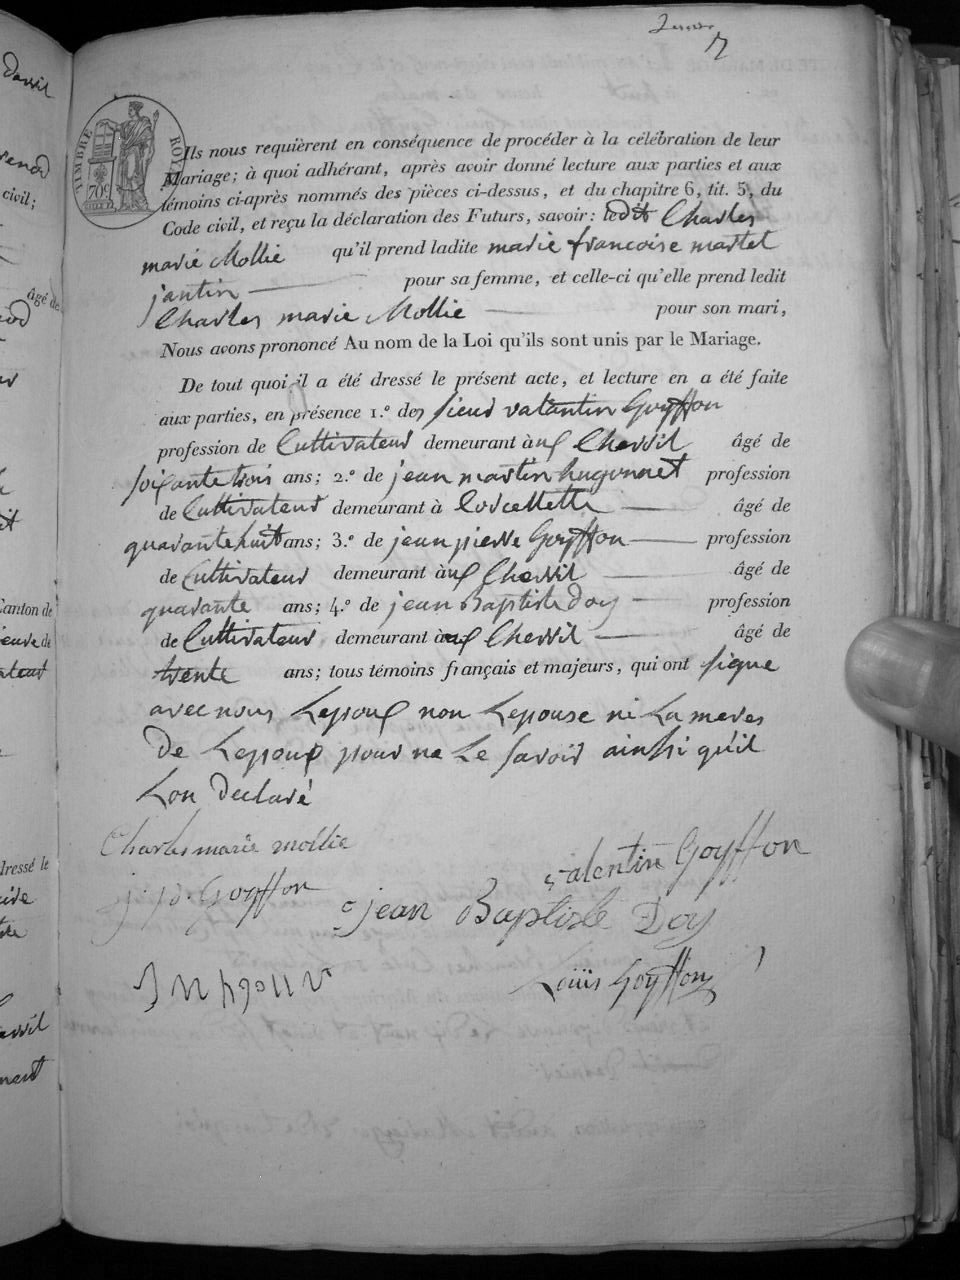 TIMBRE ROYAL
70c
Ils nous requièrent en conséquence de procéder à la célébration de leur
Mariage; à quoi adhérant, après avoir donné lecture aux parties et aux
témoins ci-après nommés des pièces ci-dessus, et du chapitre 6, tit. 5, du
Code civil, et reçu la déclaration des Futurs, savoir: ledit Charles
marie Mollie qu'il prend ladite marie francoise martel
jantin pour sa femme, et celle-ci qu'elle prend ledit
Charles marie Mollie pour son mari,
Nous avons prononcé Au nom de la Loi qu'ils sont unis par le Mariage.
De tout quoi il a été dressé le présent acte, et lecture en a été faite
aux parties, en présence 1.° des sieur valantin Goyffon
profession de Cultivateur demeurant à Chevril âgé de
soixante trois ans; 2.° de jean martin hugonnet profession
de Cultivateur demeurant à Corcellette âgé de
quarante huit ans; 3.° de jean pierre Goyffon profession
de Cultivateur demeurant à Chevril âgé de
quarante ans; 4.° de jean Baptiste Doy profession
de Cultivateur demeurant à Chevril âgé de
trente ans; tous témoins français et majeurs, qui ont signe
avec nous Lepoux non Lepouse ni La meres
De Lepoux pour ne Le savoir ainssi qu'il
Lon Declaré
Charles marie mollie
valentin Goyffon
j. p. Goyffon
jean Baptiste Doy
Louis Goyffon
âgé de
civil;
Canton de
dressé le